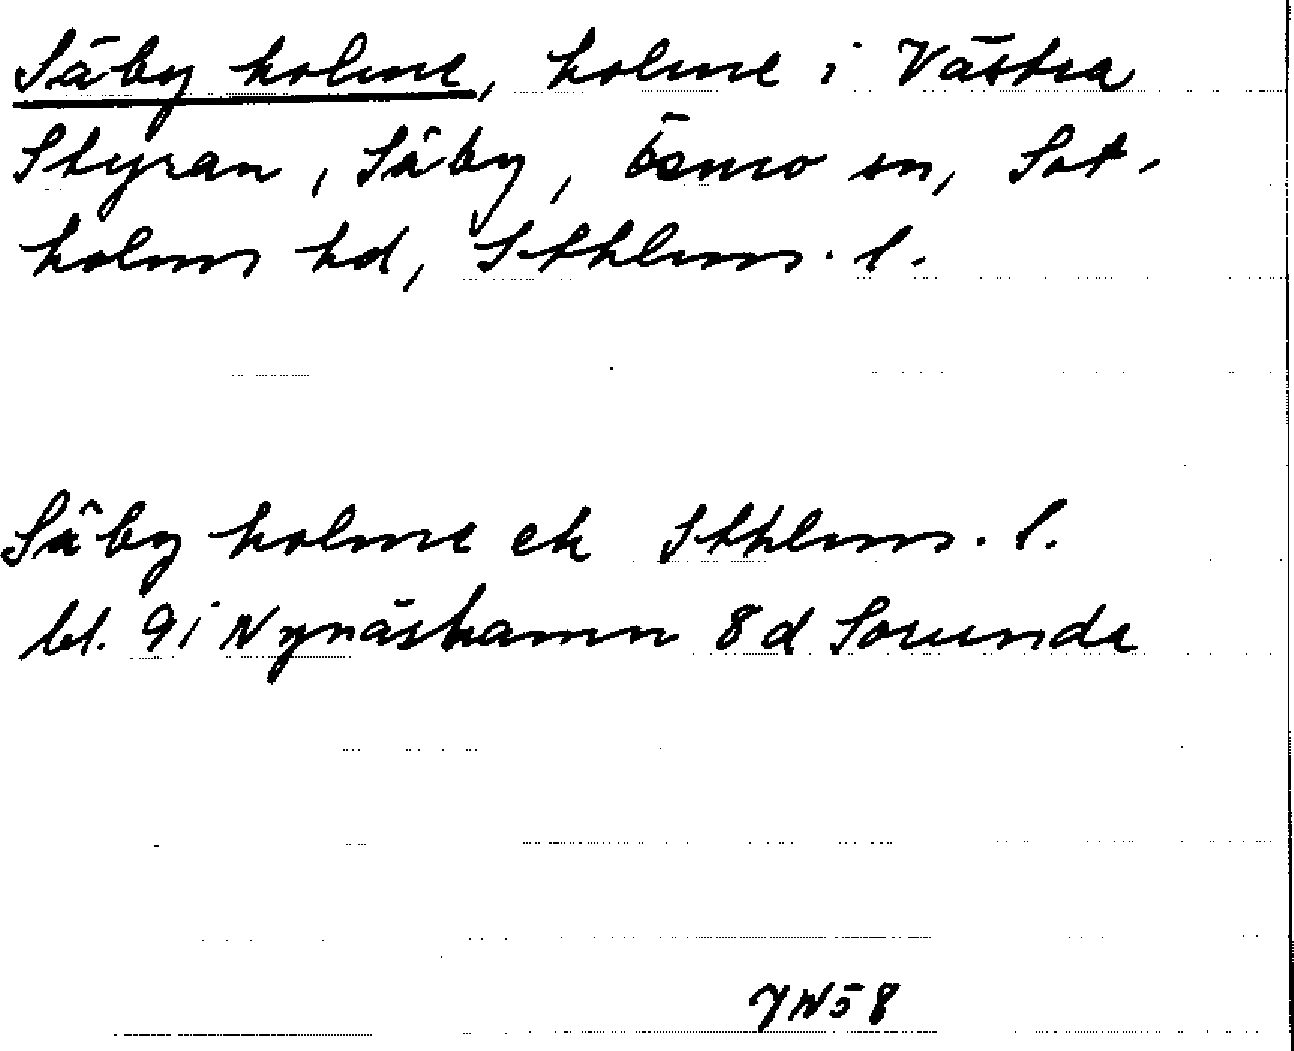 Säby holme, holme i Västra
Styran, Säby, Ösmo sn, Sot-
holms hd, Sthlms. l.
Säby holme ek Sthlms. l.
bl. 9i Nynäshamn 8d Sorunda
YN58